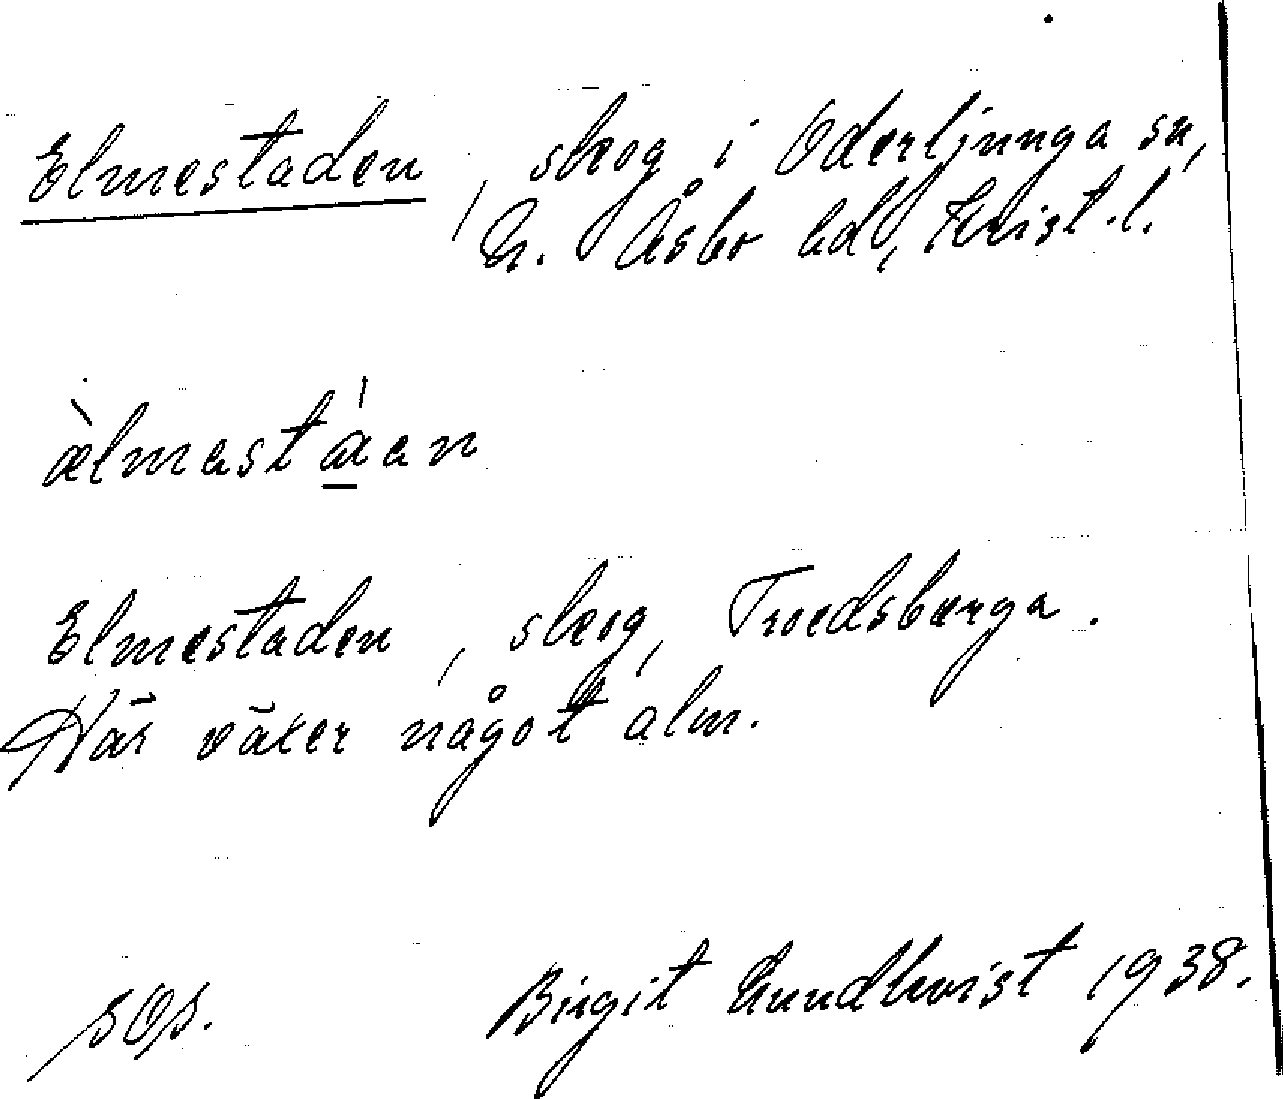 Elmestaden, skog i Oderljunga sn,
N. Åsbo hd, Krist. l.
ælmastáan
Elmestaden, skog, Troedsberga.
Här växer något alm.
SOS. Birgit Lundkvist 1938.